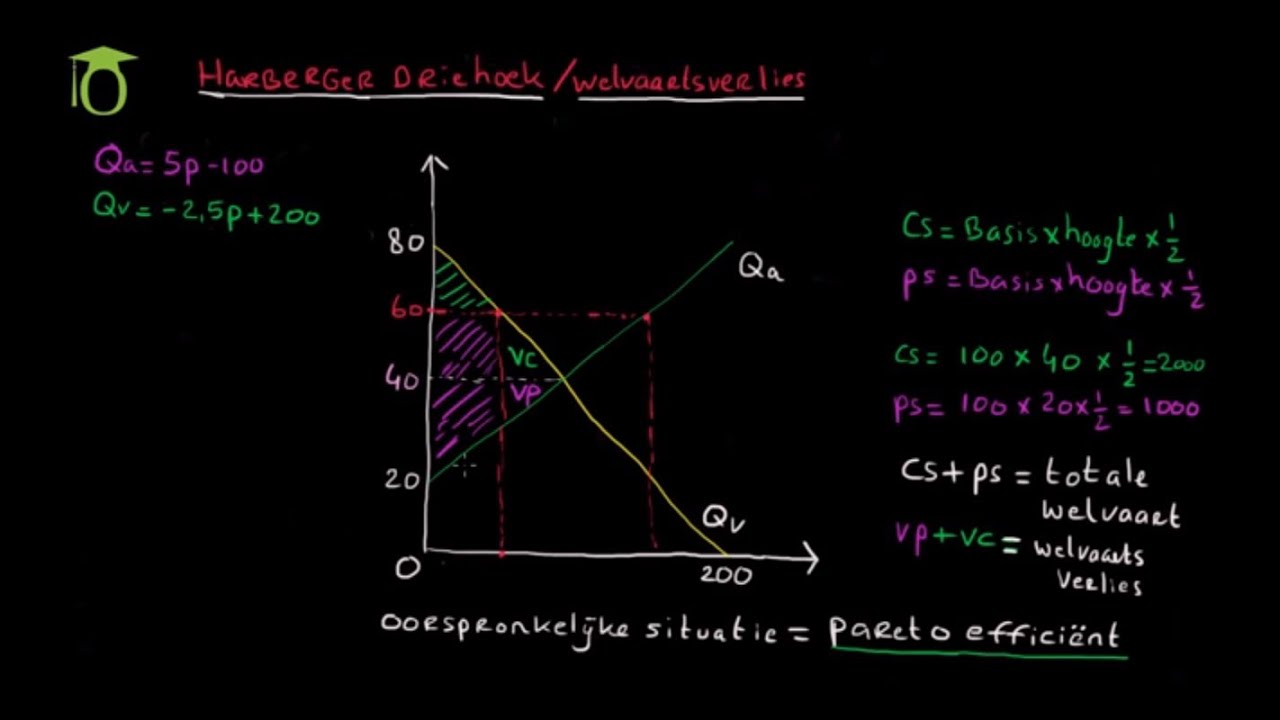 Harberger Driehoek/welvaartsverlies
Qa= 5p-100
Qv= -2,5p+200
80
60
40
20
0
200
Qa
Qv
vc
vp
Cs= Basis x hoogte x 1/2
ps= Basis x hoogte x 1/2
Cs= 100 x 40 x 1/2 =2000
ps= 100 x 20 x 1/2 = 1000
Cs+ ps = totale
welvaart
vp+vc= welvaarts
verlies
oorspronkelijke situatie = pareto efficiënt